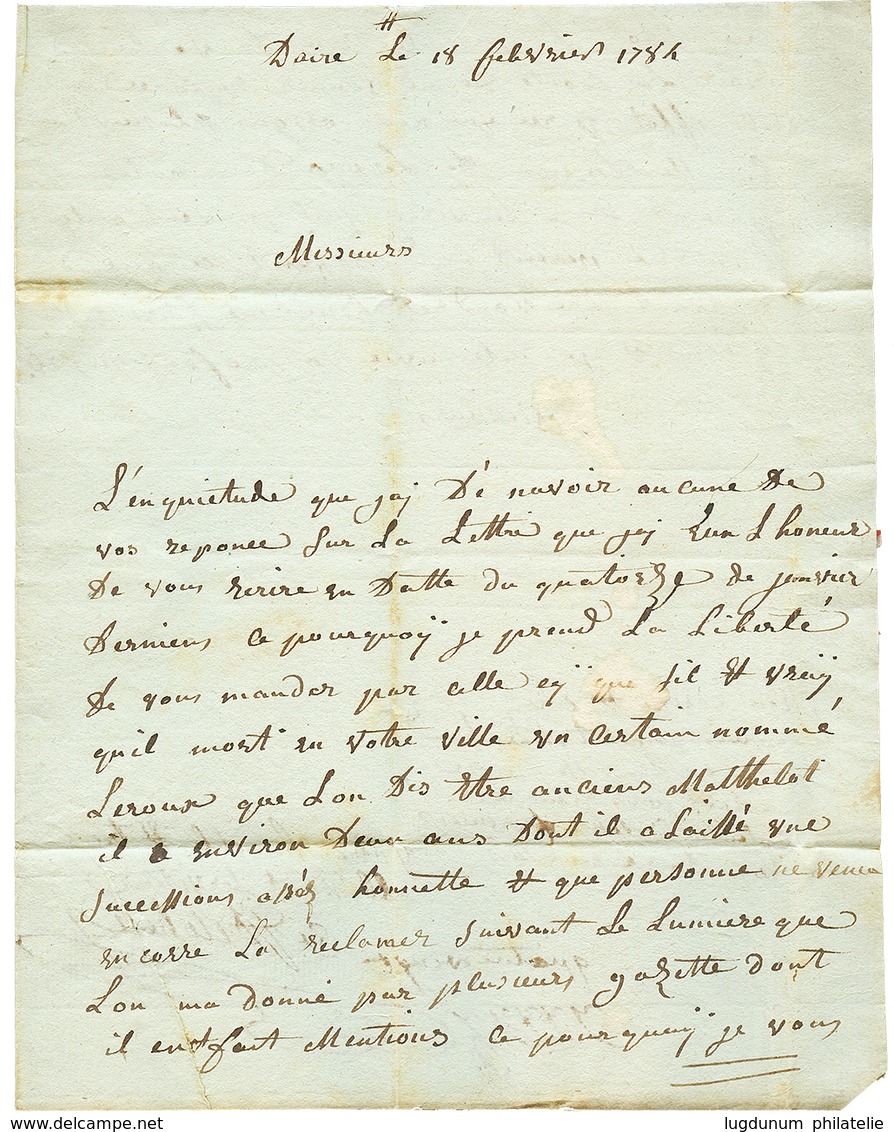 Daire Le 18 febvrier 1784
Messieurs
L'enquietude que jaj Dé navoir aucune De
vos reponce Sur La Lettre que jej Eun L honeur
De vous Ecrire en Datte du quatorze de jeanvier
Derniens Ce pourquoÿ je prend La Liberté
De vous mander par celle cy que sil Et vraÿ
quil mort en votre ville un certain nommé
Leroux que Lon Dis Etre anciens Matthelot
il a environ Deux ans Dont il a Laissé une
Sucessions assés honnette Et que personne ne venu
encorre La reclamer Suivant Le Lumiere que
Lon ma donné par plusieurs gazette dont
il en fait Mentions Ce pourquoÿ je vous
delcampe.net
lugdunum philatelie